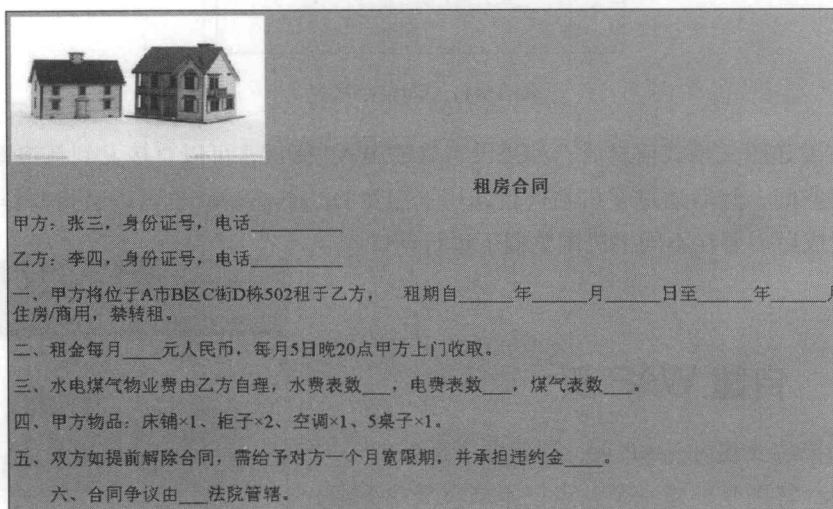 租房合同
甲方：张三，身份证号，电话__________
乙方：李四，身份证号，电话__________
一、甲方将位于A市B区C街D栋502租于乙方， 租期自______年______月______日至______年______月
住房/商用，禁转租。
二、租金每月____元人民币，每月5日晚20点甲方上门收取。
三、水电煤气物业费由乙方自理，水费表数___，电费表数___，煤气表数___。
四、甲方物品：床铺×1、柜子×2、空调×1、5桌子×1。
五、双方如提前解除合同，需给予对方一个月宽限期，并承担违约金____。
六、合同争议由___法院管辖。